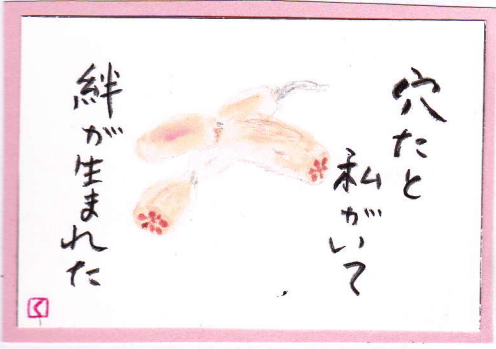 穴たと
私がいて
絆が生まれた
く